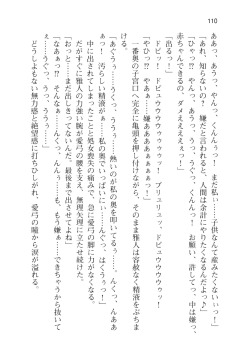 110
ああっ、あうっ、やんっ、くんんっ……。まだ私ぃ……子供なんて産みたくないっ！」
「あれ、知らないの？　嫌だと言われると、人間は余計にやりたくなるんだよっ♪」
「ひゃっ⁉　やんっ……あうっ、うっ、うぐっ、くんんーっ！　お願い、許してっ、中は嫌っ、
赤ちゃんできるの、ダメええええっ！」
「出るっ！」
ドピュッ！　ドビュウウウウゥゥッ！　ブリュリユッ、ドビュウウウウウゥッ！
「やひっ⁉　やあぁ……嫌ああああぁぁぁぁっ！」
一番奥の子宮口へ完全に亀頭を押しつけ、そのまま雅人は容赦なく精液をぶちま
ける。
「あぐうぅ……うぐっ、ううぅ……熱いのが私の奥を叩いてるぅ……。んくっ、んああ
ぁっ！　汚らしい精液がぁ……私の奥でいっぱいぃ……。んくっ、はくうぅっ！」
中に出されてしまったことと処女喪失の痛みで、急に愛弓の脚に力がなくなる。
だがすぐに雅人の力強い腕が愛弓の腰を支え、無理矢理に立たせ続けた。
「おっと……まだ出しきってないんだ。最後まで出させてよな！」
「なああぁっ⁉　ああぁ……だめ、もう嫌あぁっ……できちゃうから抜いてぇっ！」
どうしようもない無力感と絶望感に打ちひしがれ、愛弓の瞳から涙が溢れる。